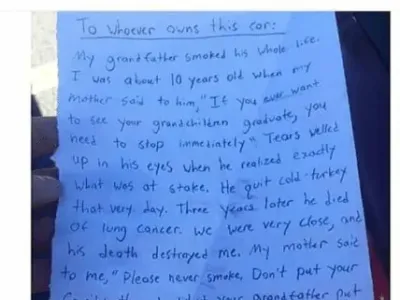 To whoever owns this car:
My grandfather smoked his whole life.
I was about 10 years old when my
mother said to him, "If you ever want
to see your grandchildren graduate, you
need to stop immediately." Tears welled
up in his eyes when he realized exactly
what was at stake. He quit cold-turkey
that very day. Three years later he died
of lung cancer. We were very close, and
his death destroyed me. My mother said
to me, "Please never smoke. Don't put your
your grandfather put